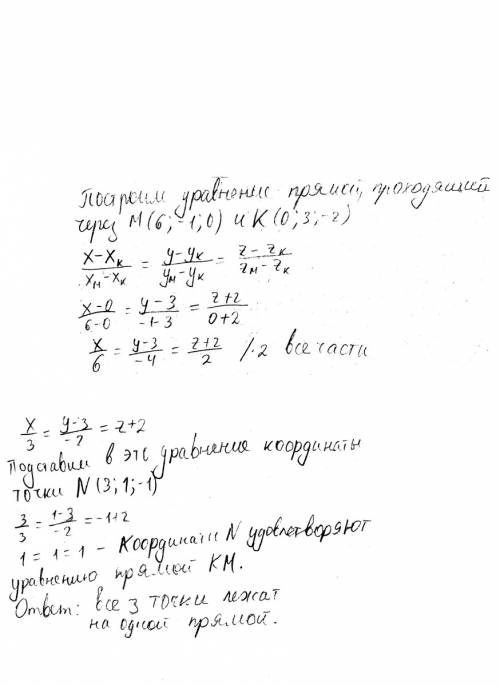 Построим уравнение прямой, проходящей
через M(6;-1;0) и K(0;3;-2)
(x-x_K)/(x_M-x_K) = (y-y_K)/(y_M-y_K) = (z-z_K)/(z_M-z_K)
(x-0)/(6-0) = (y-3)/(-1-3) = (z+2)/(0+2)
x/6 = (y-3)/(-4) = (z+2)/2 /·2 все части
x/3 = (y-3)/(-2) = z+2
Подставим в это уравнение координаты
точки N(3;1;-1)
3/3 = (1-3)/(-2) = -1+2
1=1=1 - Координаты N удовлетворяют
уравнению прямой KM.
Ответ: все 3 точки лежат
на одной прямой.